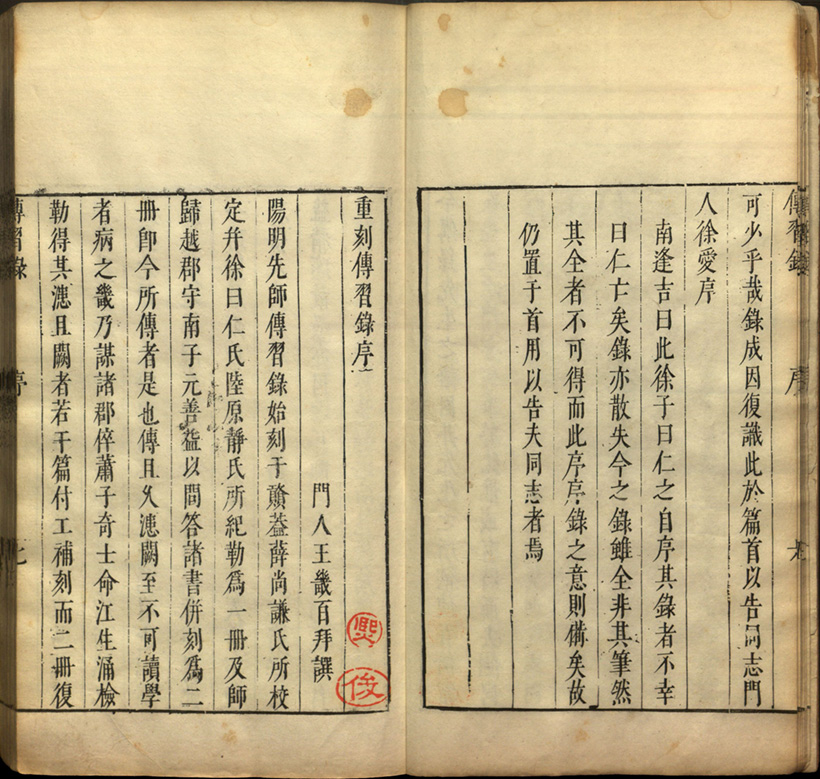 傳習錄 序
可少乎哉錄成因復識此於篇首以告同志門
人徐愛序
南逢吉曰此徐子曰仁之自序其錄者不幸
曰仁亡矣錄亦散失今之錄雖全非其筆然
其全者不可得而此序序錄之意則備矣故
仍置于首用以告夫同志者焉
重刻傳習錄序
門人王畿百拜撰
陽明先師傳習錄始刻于贛葢薛尚謙氏所校
定幷徐曰仁氏陸原靜氏所紀勒為一冊及師
歸越郡守南子元善益以問答諸書併刻為二
冊卽今所傳者是也傳且久漶闕至不可讀學
者病之畿乃謀諸郡倅蕭子奇士命江生涌檢
勒得其漶且闕者若干篇付工補刻而二冊復
傳習錄 序 七
熙
俊